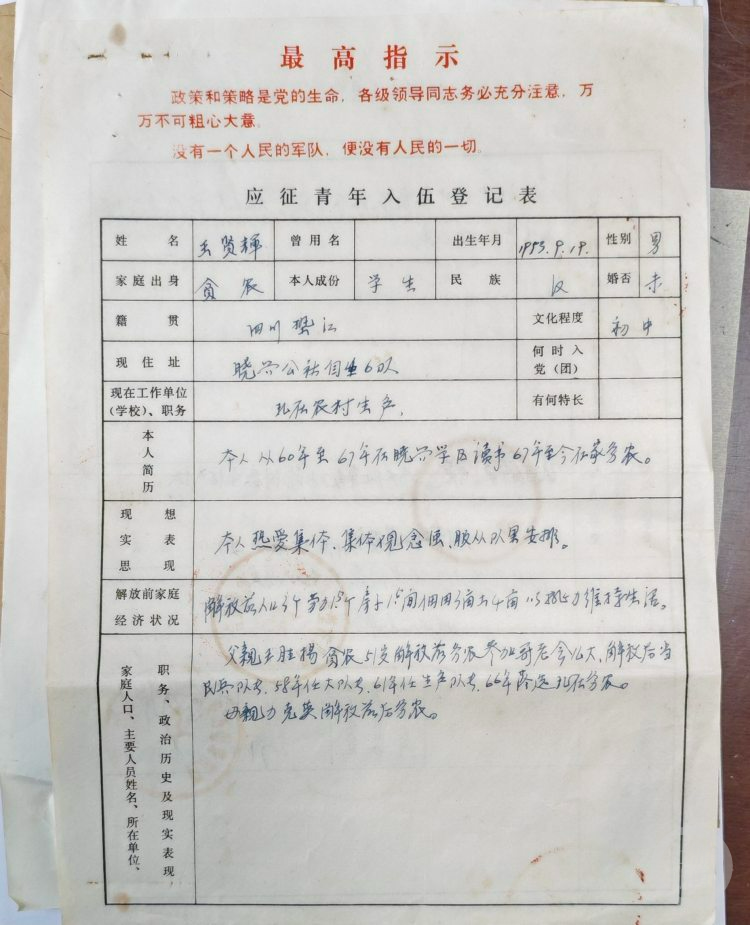 最高指示
政策和策略是党的生命，各级领导同志务必充分注意，万
万不可粗心大意。
没有一个人民的军队，便没有人民的一切。
应征青年入伍登记表
姓名 贤辉 曾用名 出生年月 1953.9.19. 性别 男
家庭出身 贫农 本人成份 学生 民族 汉 婚否 未
籍贯 四川垫江 文化程度 初中
现住址 晓兴公社 6队 何时入党(团)
现在工作单位(学校)、职务 现在农村生产. 有何特长
本人简历 本人从60年至67年在晓兴学区读书67年至今在家务农。
现实思想表现 本人热爱集体、集体观念强、服从从队里安排。
解放前家庭经济状况 解放前人口3个劳力 个 间佃田 土4亩 维持生活。
家庭人口、主要人员姓名、所在单位、职务、政治历史及现实表现
父亲王胜扬贫农51岁解放前务农参加哥老会 大、解放后当
民兵队长、58年任大队长、61年任生产队长、66年落选现在务农。
母亲 克英解放前后务农。